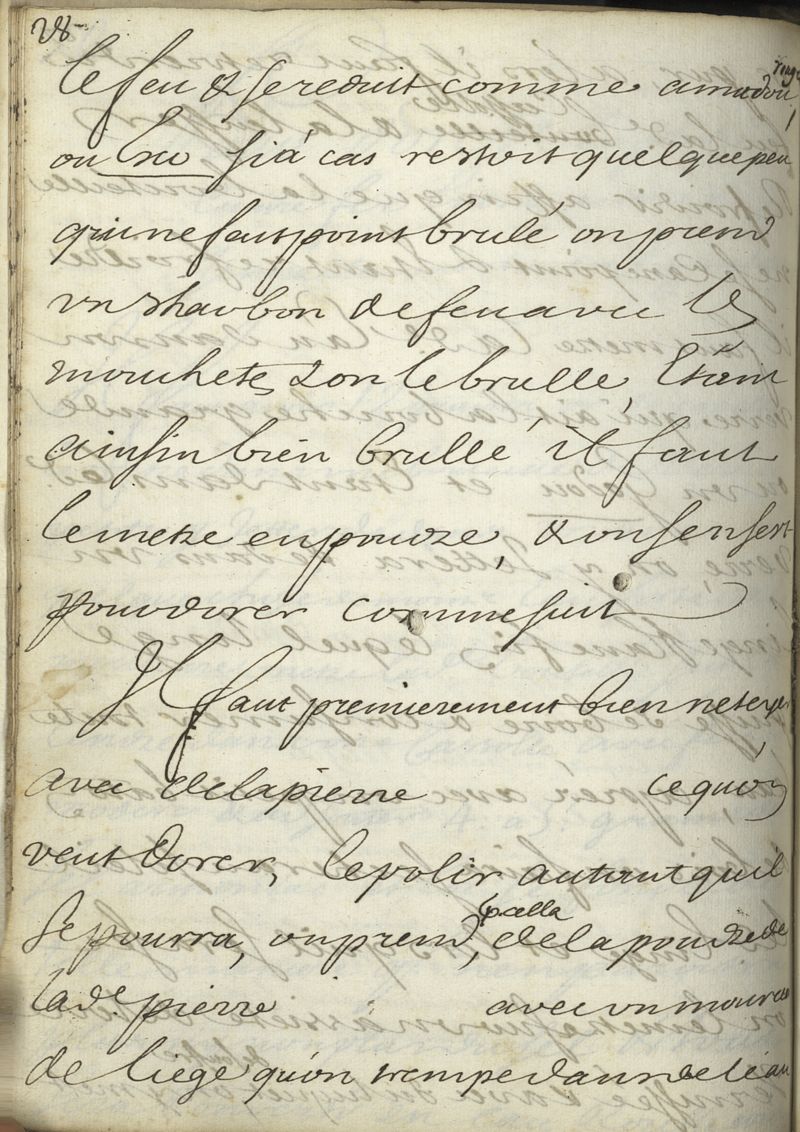 28
le feu & se reduit comme amadou rouge
ou si à cas restoit quelque peu
qui ne feut point brulé on prend
vn charbon de feu avec les
mouchetes & on le brulle, Etant
ainsin bien brullé il faut
le metre en poudre, & on sen sert
pour dorer comme suit
Il faut premierement bien neteyer
avec de la pierre ce qu'on
veut dorer, le polir autant quil
se pourra, on prend, pr cella de la poudre de
lade. pierre avec vn morceau
de liege qu'on trempe dans de l'eau